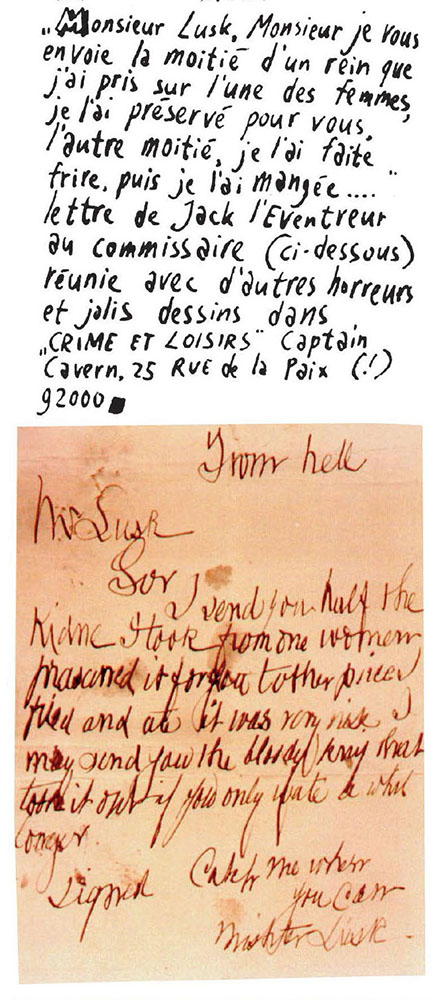 „Monsieur Lusk, Monsieur je vous
envoie la moitié d'un rein que
j'ai pris sur l'une des femmes,
je l'ai préservé pour vous,
l'autre moitié, je l'ai faite
frire, puis je l'ai mangée...."
lettre de Jack l'Eventreur
au commissaire (ci-dessous)
réunie avec d'autres horreurs
et jolis dessins dans
„CRIME ET LOISIRS" Captain
Cavern, 25 RUE de la Paix (!)
92000
From hell
Mr Lusk
Sor
I send you half the
Kidne I took from one women
prasarved it for you tother piece I
fried and ate it was very nise I
may send you the bloody knif that
took it out if you only wate a whil
longer.
signed
Catch me when
you Can
Mishter Lusk.